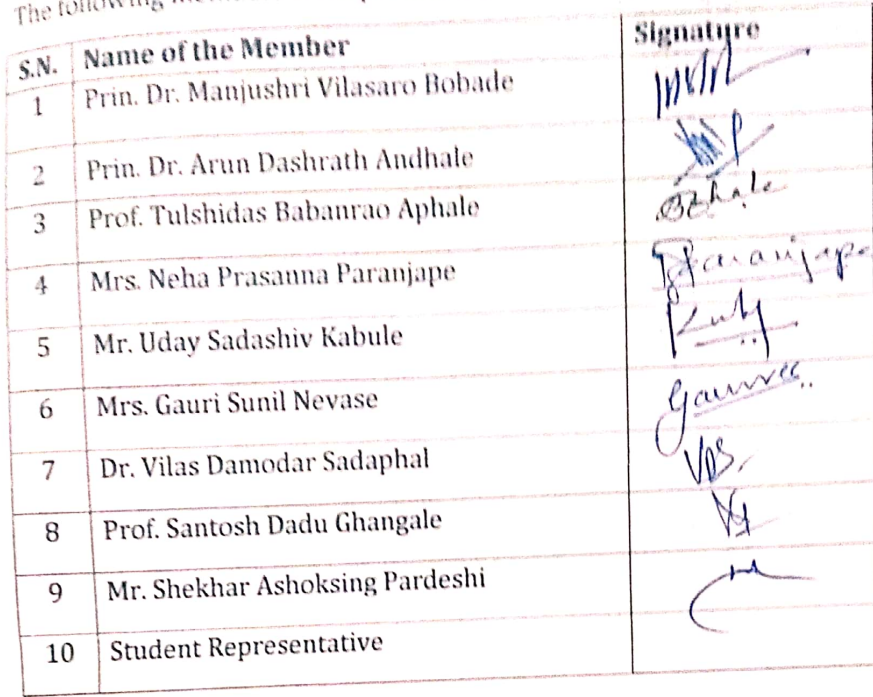 The following
S.N. Name of the Member Signature
1 Prin. Dr. Manjushri Vilasaro Bobade
2 Prin. Dr. Arun Dashrath Andhale
3 Prof. Tulshidas Babanrao Aphale
4 Mrs. Neha Prasanna Paranjape Paranjape
5 Mr. Uday Sadashiv Kabule
6 Mrs. Gauri Sunil Nevase
7 Dr. Vilas Damodar Sadaphal VDS.
8 Prof. Santosh Dadu Ghangale
9 Mr. Shekhar Ashoksing Pardeshi
10 Student Representative